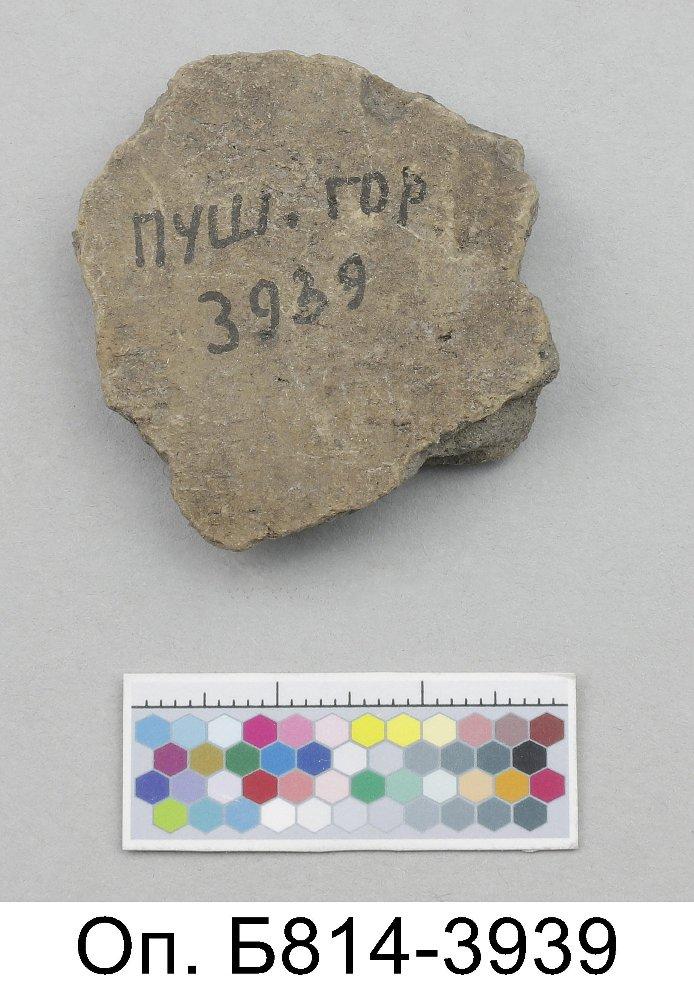 ПУШ. ГОР
3939
Оп. Б814-3939